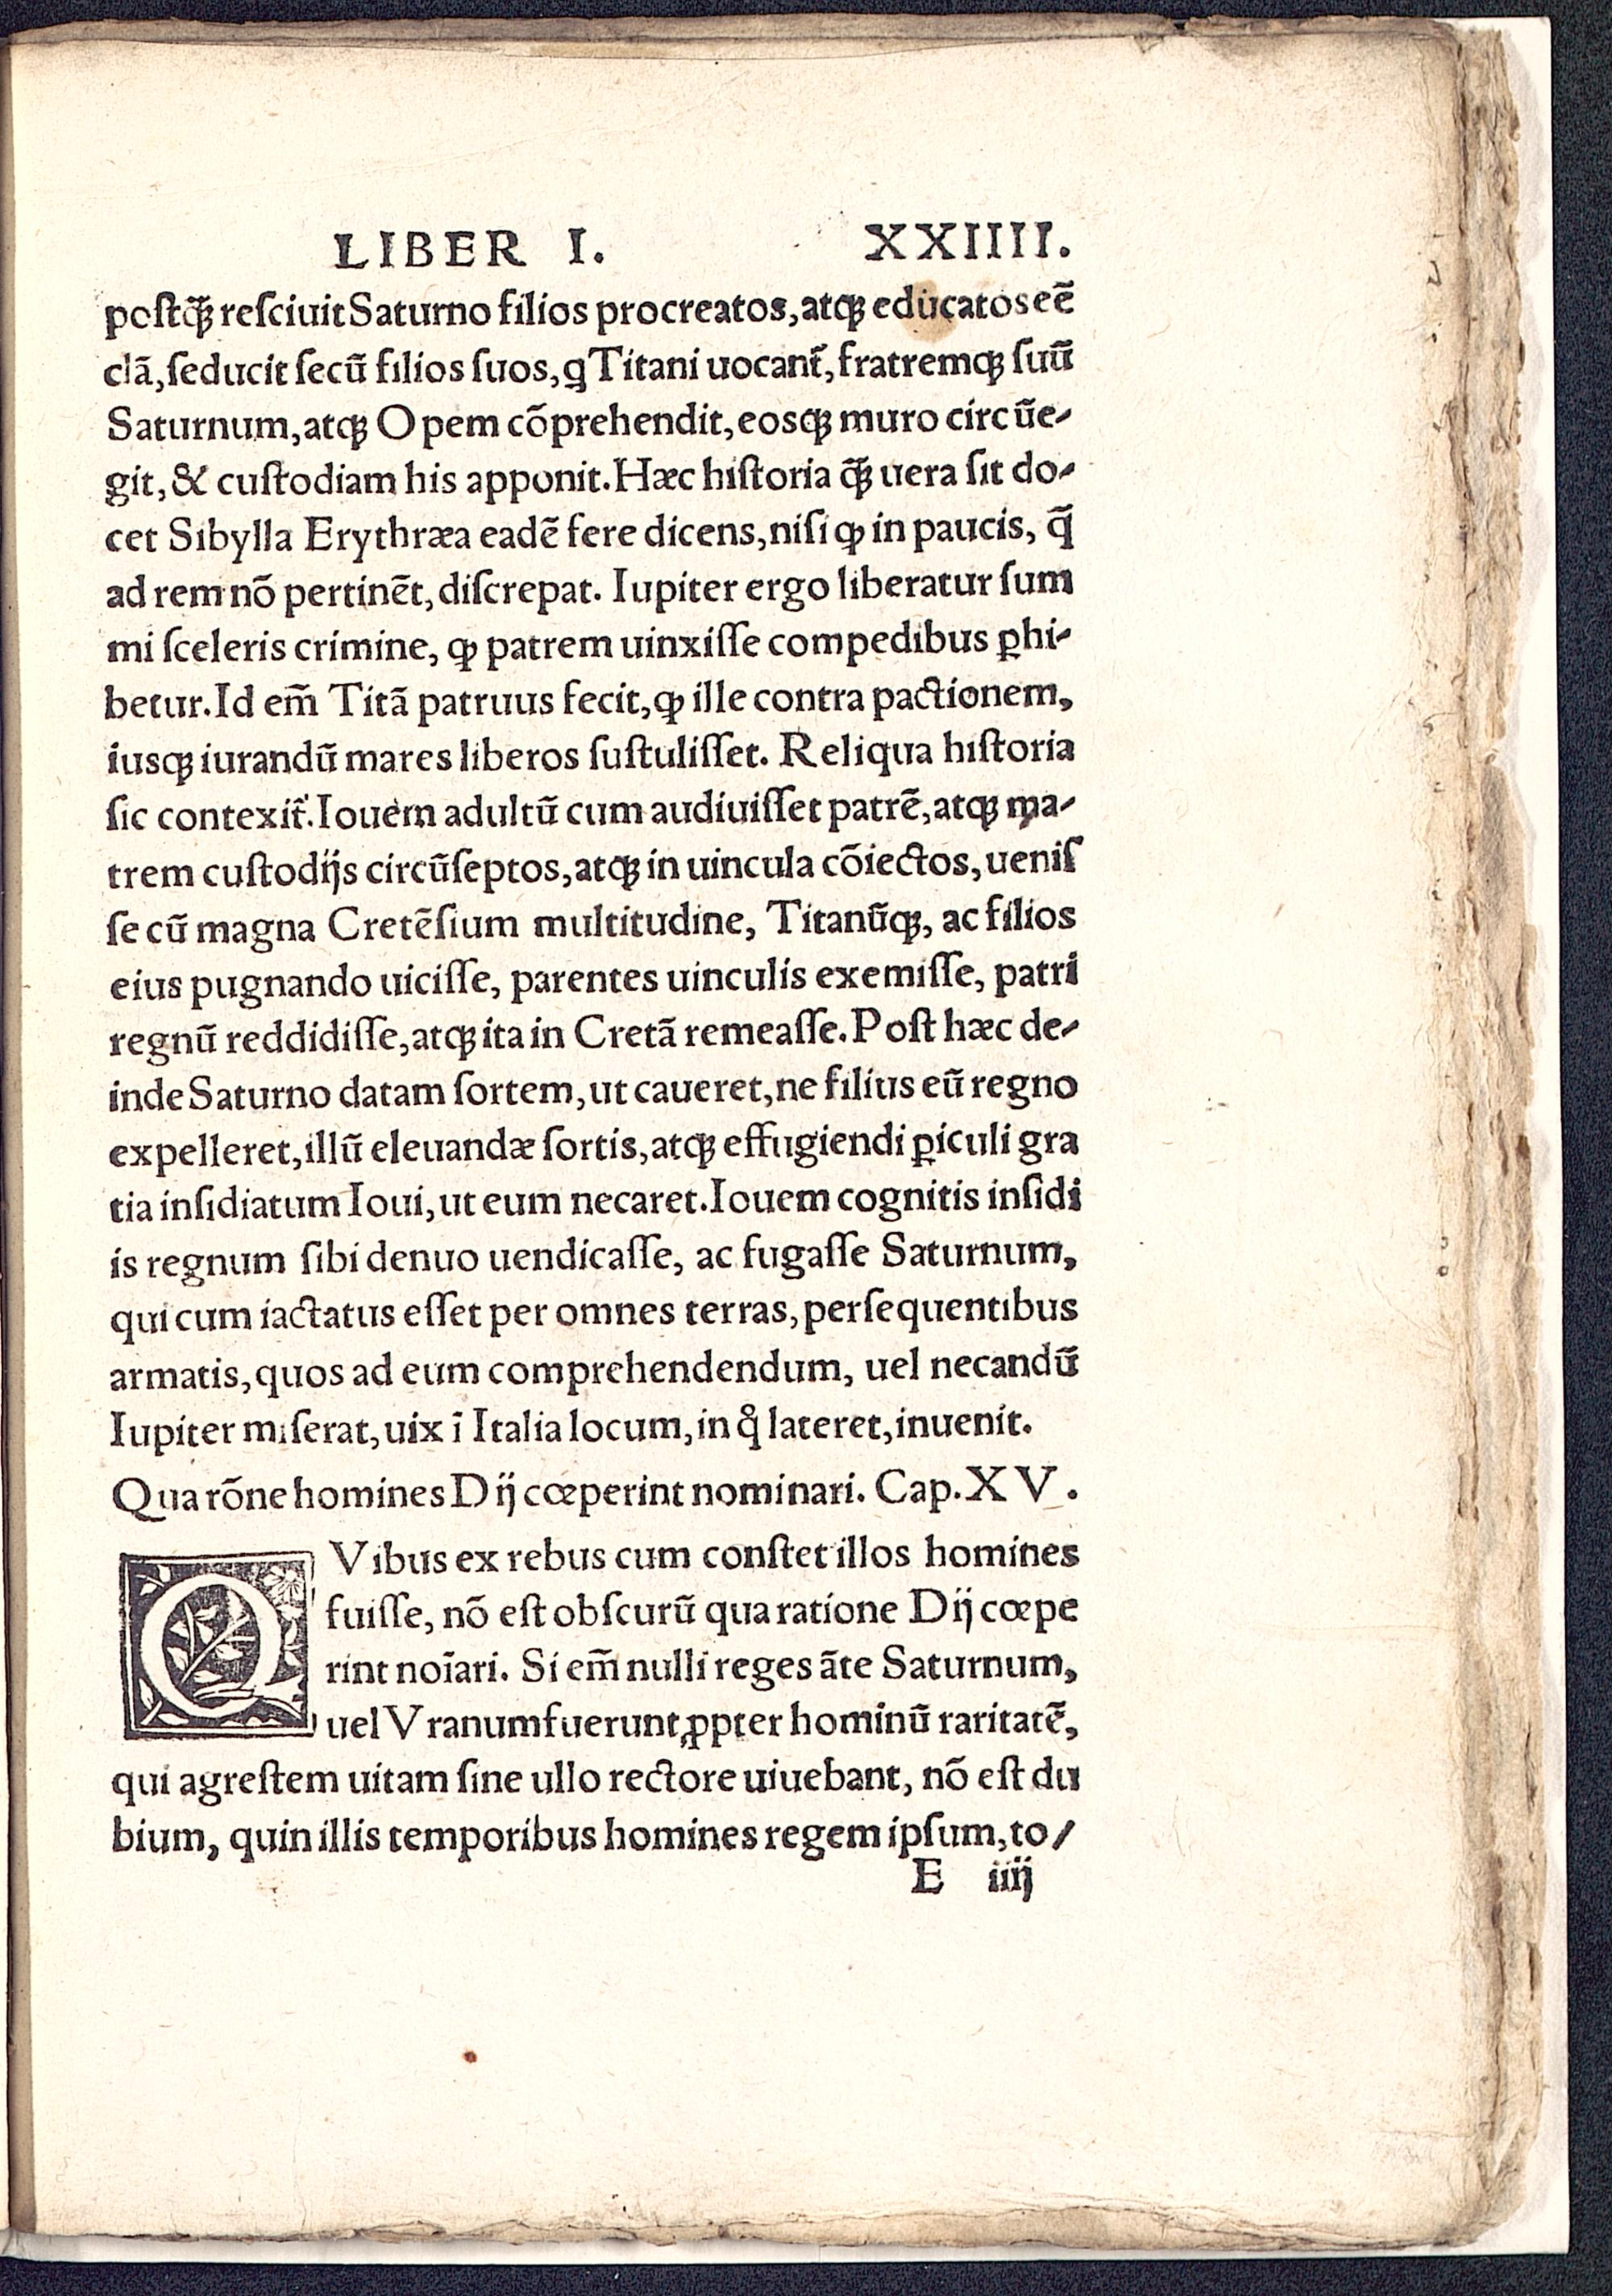 LIBER I. XXIIII.
postꝗ̃ꝫ resciuit Saturno filios procreatos, atqꝫ educatos eẽ
clã, seducit secũ filios suos, ꝗ Titani uocant᷑, fratremqꝫ suũ
Saturnum, atqꝫ Opem cõprehendit, eosqꝫ muro circũe-
git, & custodiam his apponit. Hæc historia ꝗ̃ꝫ uera sit do-
cet Sibylla Erythræa eadẽ fere dicens, nisi ꝙ in paucis, q̃
ad rem nõ pertinẽt, discrepat. Iupiter ergo liberatur sum
mi sceleris crimine, ꝙ patrem uinxisse compedibus ꝑhi-
betur. Id em̃ Titã patruus fecit, ꝙ ille contra pactionem,
iusqꝫ iurandũ mares liberos sustulisset. Reliqua historia
sic contexit᷑. Iouem adultũ cum audiuisset patrẽ, atqꝫ ma-
trem custodijs circũseptos, atqꝫ in uincula cõiectos, uenis
se cũ magna Cretẽsium multitudine, Titanũqꝫ, ac filios
eius pugnando uicisse, parentes uinculis exemisse, patri
regnũ reddidisse, atqꝫ ita in Cretã remeasse. Post hæc de-
inde Saturno datam sortem, ut caueret, ne filius eũ regno
expelleret, illũ eleuandæ sortis, atqꝫ effugiendi ꝑiculi gra
tia insidiatum Ioui, ut eum necaret. Iouem cognitis insidi
is regnum sibi denuo uendicasse, ac fugasse Saturnum,
qui cum iactatus esset per omnes terras, persequentibus
armatis, quos ad eum comprehendendum, uel necandũ
Iupiter miserat, uix ĩ Italia locum, in qͦ lateret, inuenit.
Qua rõne homines Dij cœperint nominari. Cap. XV.
QVibus ex rebus cum constet illos homines
fuisse, nõ est obscurũ qua ratione Dij cœpe
rint noĩari. Si em̃ nulli reges ãte Saturnum,
uel Vranum fuerunt ꝓpter hominũ raritatẽ,
qui agrestem uitam sine ullo rectore uiuebant, nõ est du
bium, quin illis temporibus homines regem ipsum, to/
E iiij